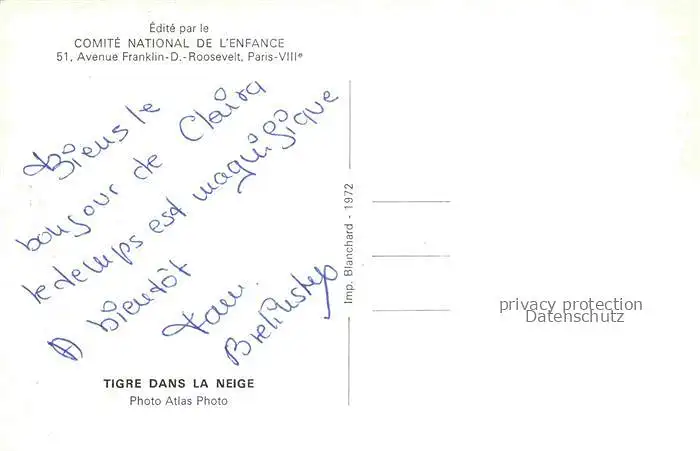 Édité par le
COMITÉ NATIONAL DE L'ENFANCE
51, Avenue Franklin-D.-Roosevelt, Paris-VIIIe
le
bonjour de Claira
le temps est magnifique
A bientôt
TIGRE DANS LA NEIGE
Photo Atlas Photo
Imp. Blanchard - 1972
privacy protection
Datenschutz